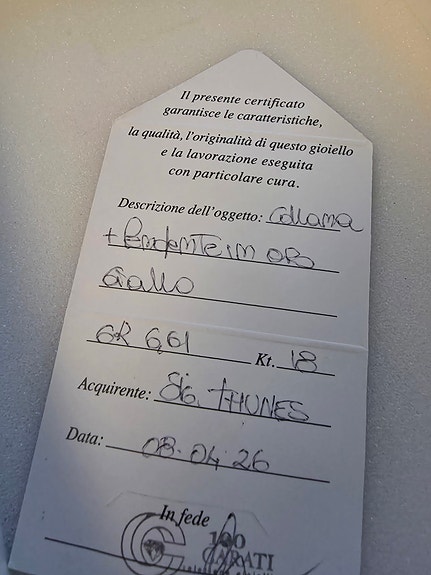 Il presente certificato
garantisce le caratteristiche,
la qualità, l'originalità di questo gioiello
e la lavorazione eseguita
con particolare cura.
Descrizione dell'oggetto: Collana
+ Pendente in oro
Giallo
GR 6,61 Kt. 18
Acquirente: Sig. THUNES
Data: 03.04.26
In fede
100
CARATI